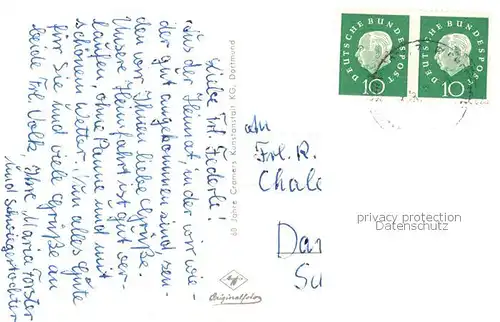 Liebe Frl. Federle!
Aus der Heimat, in der wir wie-
der gut angekommen sind, sen-
den wir Ihnen liebe Grüße.
Unsere Heimfahrt ist gut ver-
laufen, ohne Panne und mit
schönem Wetter. Nun alles Gute
für Sie und viele Grüße an
beide Frl. Volk, Ihre Maria Forster
und Schwiegertochter
60 Jahre Cramers Kunstanstalt KG, Dortmund
Agfa
Originalfoto
DEUTSCHE BUNDESPOST
10
DEUTSCHE BUNDESPOST
10
an
Frl. R.
Chale
Dar
privacy protection
Datenschutz